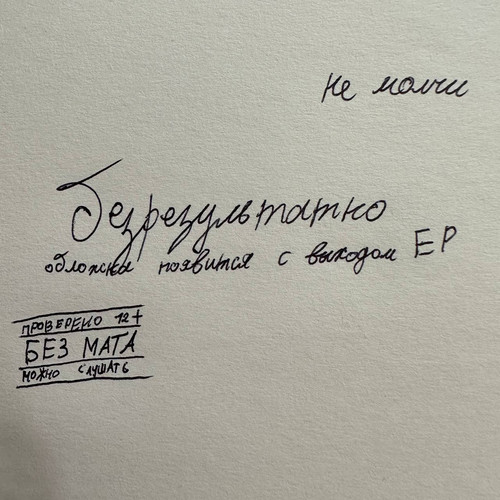 не молчи
Безрезультатно
обложка появится с выходом EP
ПРОВЕРЕНО 12+
БЕЗ МАТА
МОЖНО СЛУШАТЬ